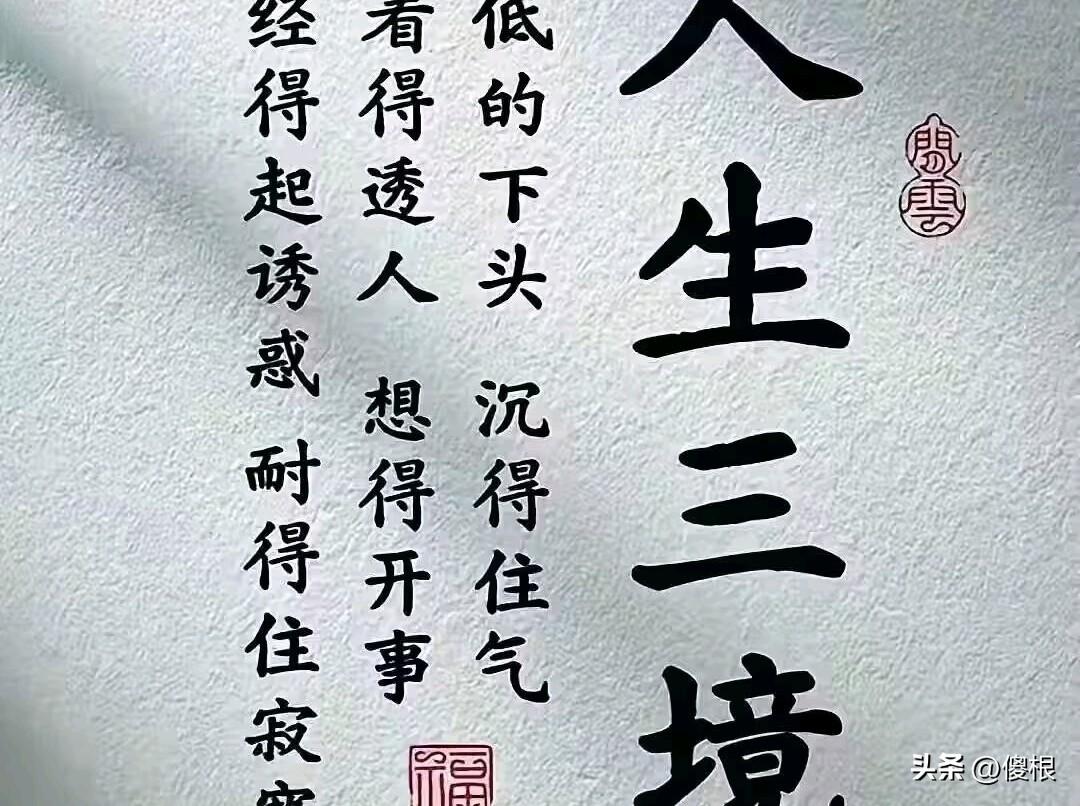 人生三境
低的下头 沉得住气
看得透人 想得开事
经得起诱惑 耐得住寂寞
闲云
福
头条 @傻根